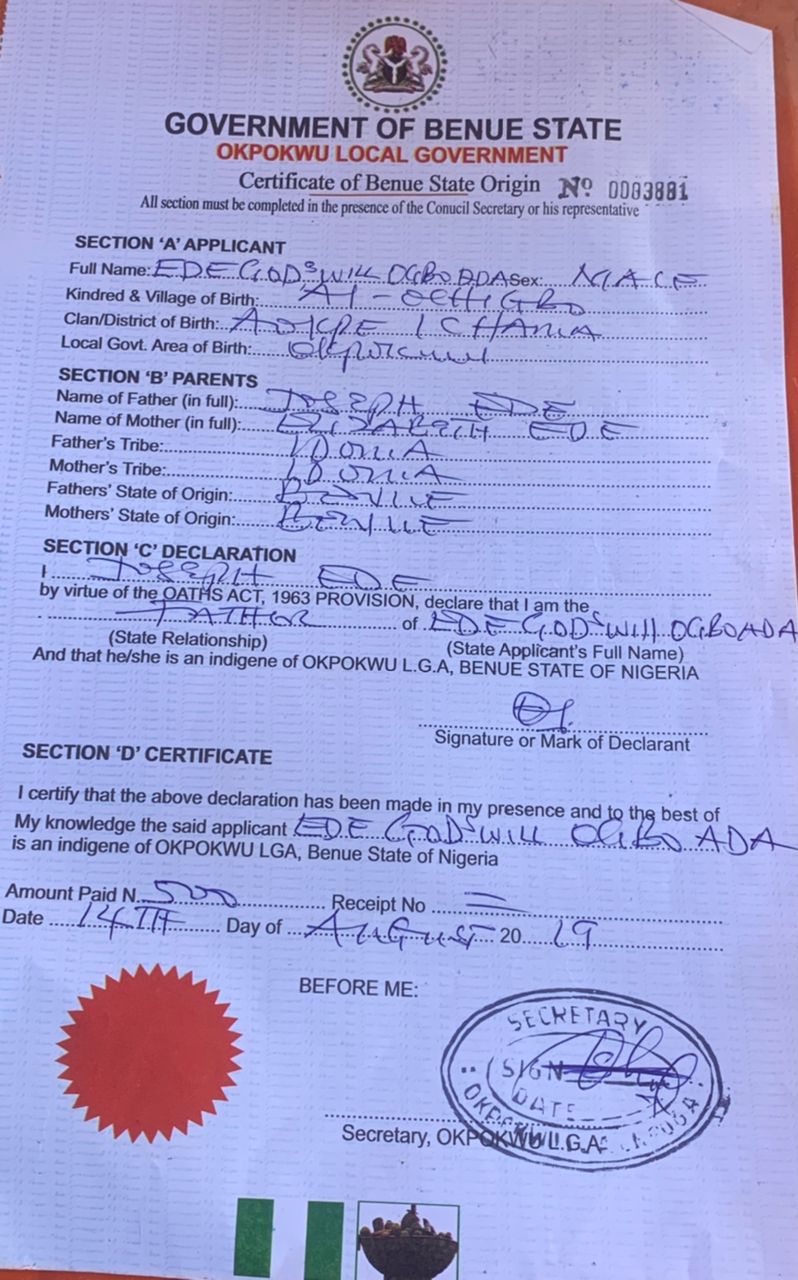 GOVERNMENT OF BENUE STATE
OKPOKWU LOCAL GOVERNMENT
Certificate of Benue State Origin Nº 0083881
All section must be completed in the presence of the Conucil Secretary or his representative
SECTION 'A' APPLICANT
Full Name: EDE GOD'SWILL OGBO ADA Sex: MALE
Kindred & Village of Birth: AI-OCHIGBO
Clan/District of Birth: AOKPE ICHAMA
Local Govt. Area of Birth: Okpokwu
SECTION 'B' PARENTS
Name of Father (in full): JOSEPH EDE
Name of Mother (in full): ELIZABETH EDE
Father's Tribe: IDOMA
Mother's Tribe: IDOMA
Fathers' State of Origin: BENUE
Mothers' State of Origin: BENUE
SECTION 'C' DECLARATION
I JOSEPH EDE
by virtue of the OATHS ACT, 1963 PROVISION, declare that I am the
FATHER of EDE GOD'SWILL OGBO ADA
(State Relationship) (State Applicant's Full Name)
And that he/she is an indigene of OKPOKWU L.G.A, BENUE STATE OF NIGERIA
Signature or Mark of Declarant
SECTION 'D' CERTIFICATE
I certify that the above declaration has been made in my presence and to the best of
My knowledge the said applicant EDE GOD'SWILL OGBO ADA
is an indigene of OKPOKWU LGA, Benue State of Nigeria
Amount Paid N. 500 Receipt No =
Date 14TH Day of AUGUST 20 19
BEFORE ME:
SECRETARY
SIGN
DATE
Secretary, OKPOKWU L.G.A